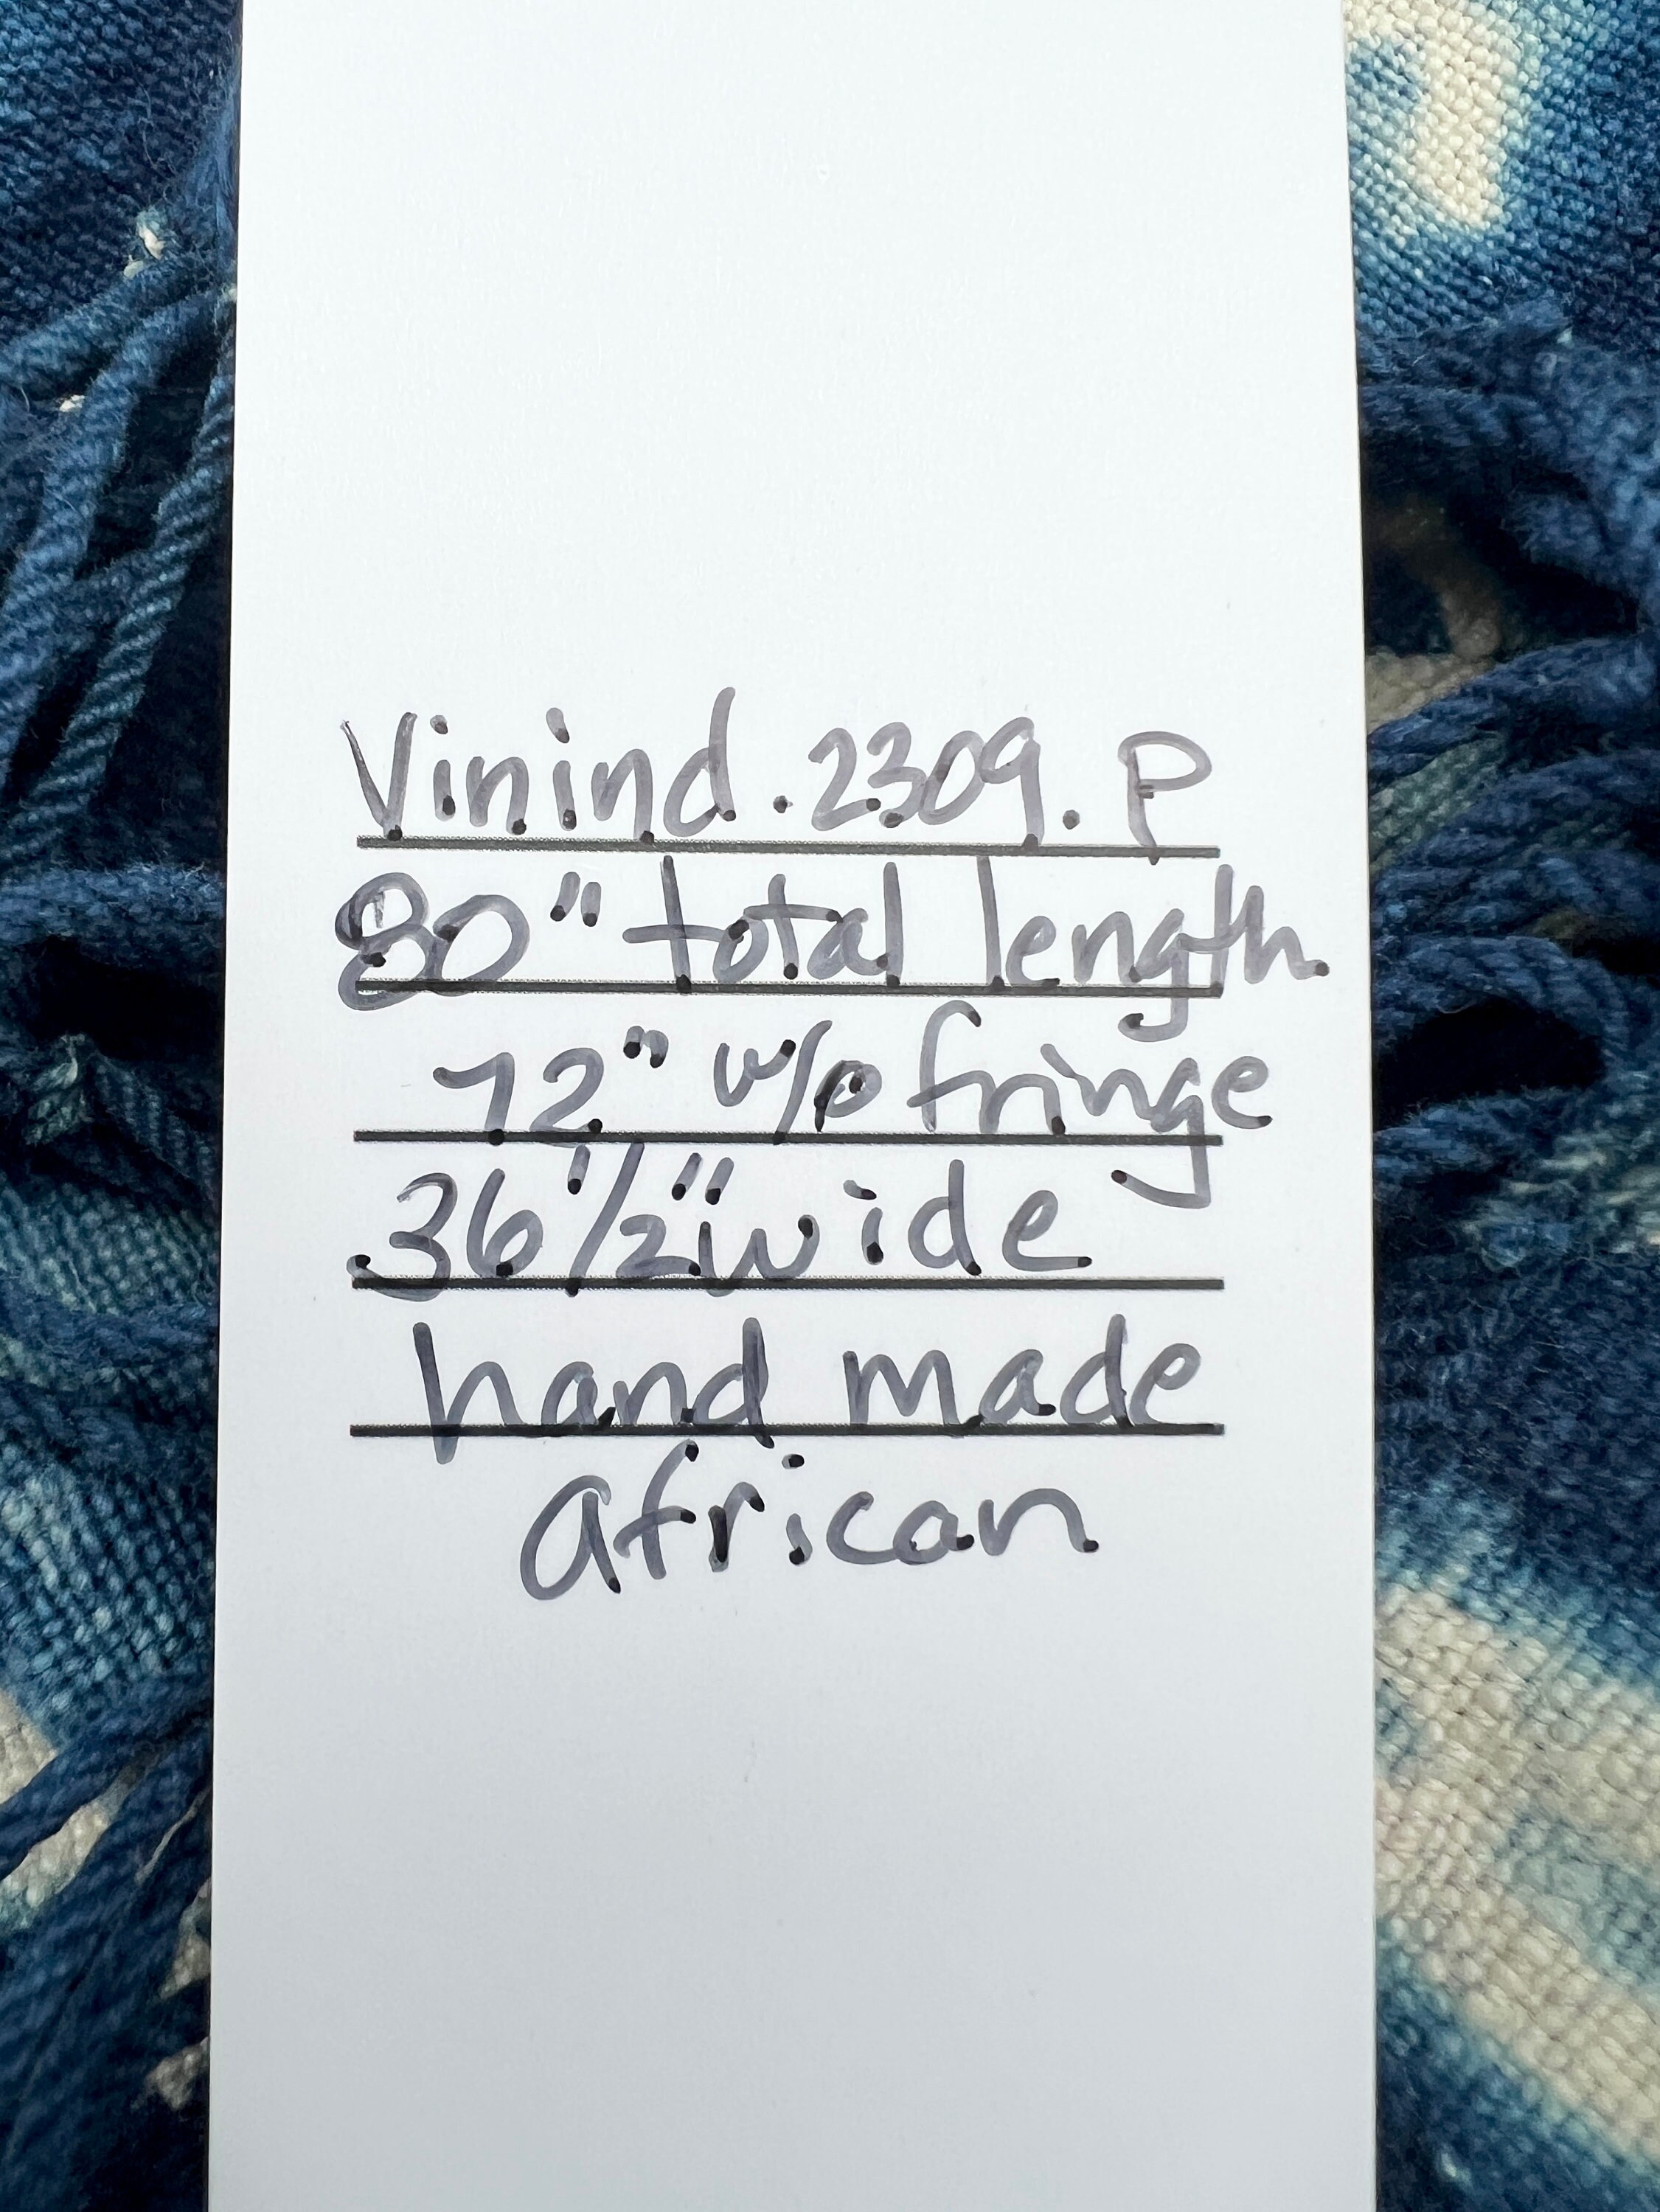 Vinind.2309.P
80" total length
72" w/o fringe
36 1/2" wide
hand made
african